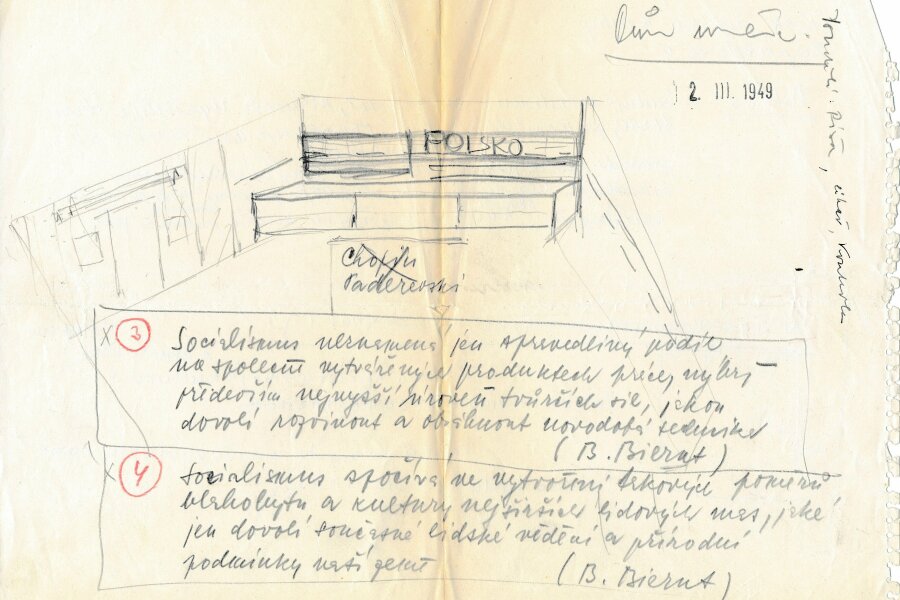 2. III. 1949
POLSKO
Chopin
Paderewski
x 3 Socialismus neznamená jen spravedlivý podíl
na společně vytvářených produktech práce, nýbrž
především nejvyšší úroveň tvůrčích sil, jakou
dovolí rozvinout a obsáhnout novodobá technika
(B. Bierut)
x 4 Socialismus spočívá ve vytvoření takových poměrů
blahobytu a kultury nejširších lidových mas, jaké
jen dovolí současné lidské vědění a přírodní
podmínky naší země
(B. Bierut)